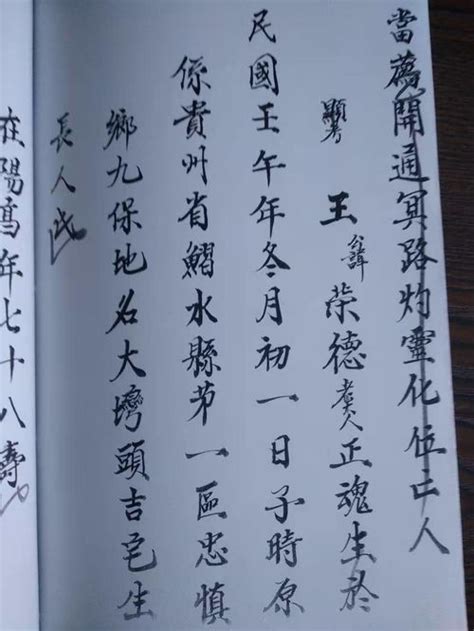 當薦開通冥路灼靈化位亡人
顯考 王 公諱 榮德 老大人 正魂生於
民國壬午年冬月初一日子時原
係貴州省鰼水縣苐一區忠慎
鄉九保地名大塆頭吉宅生
長人氏
在陽高年七十八壽